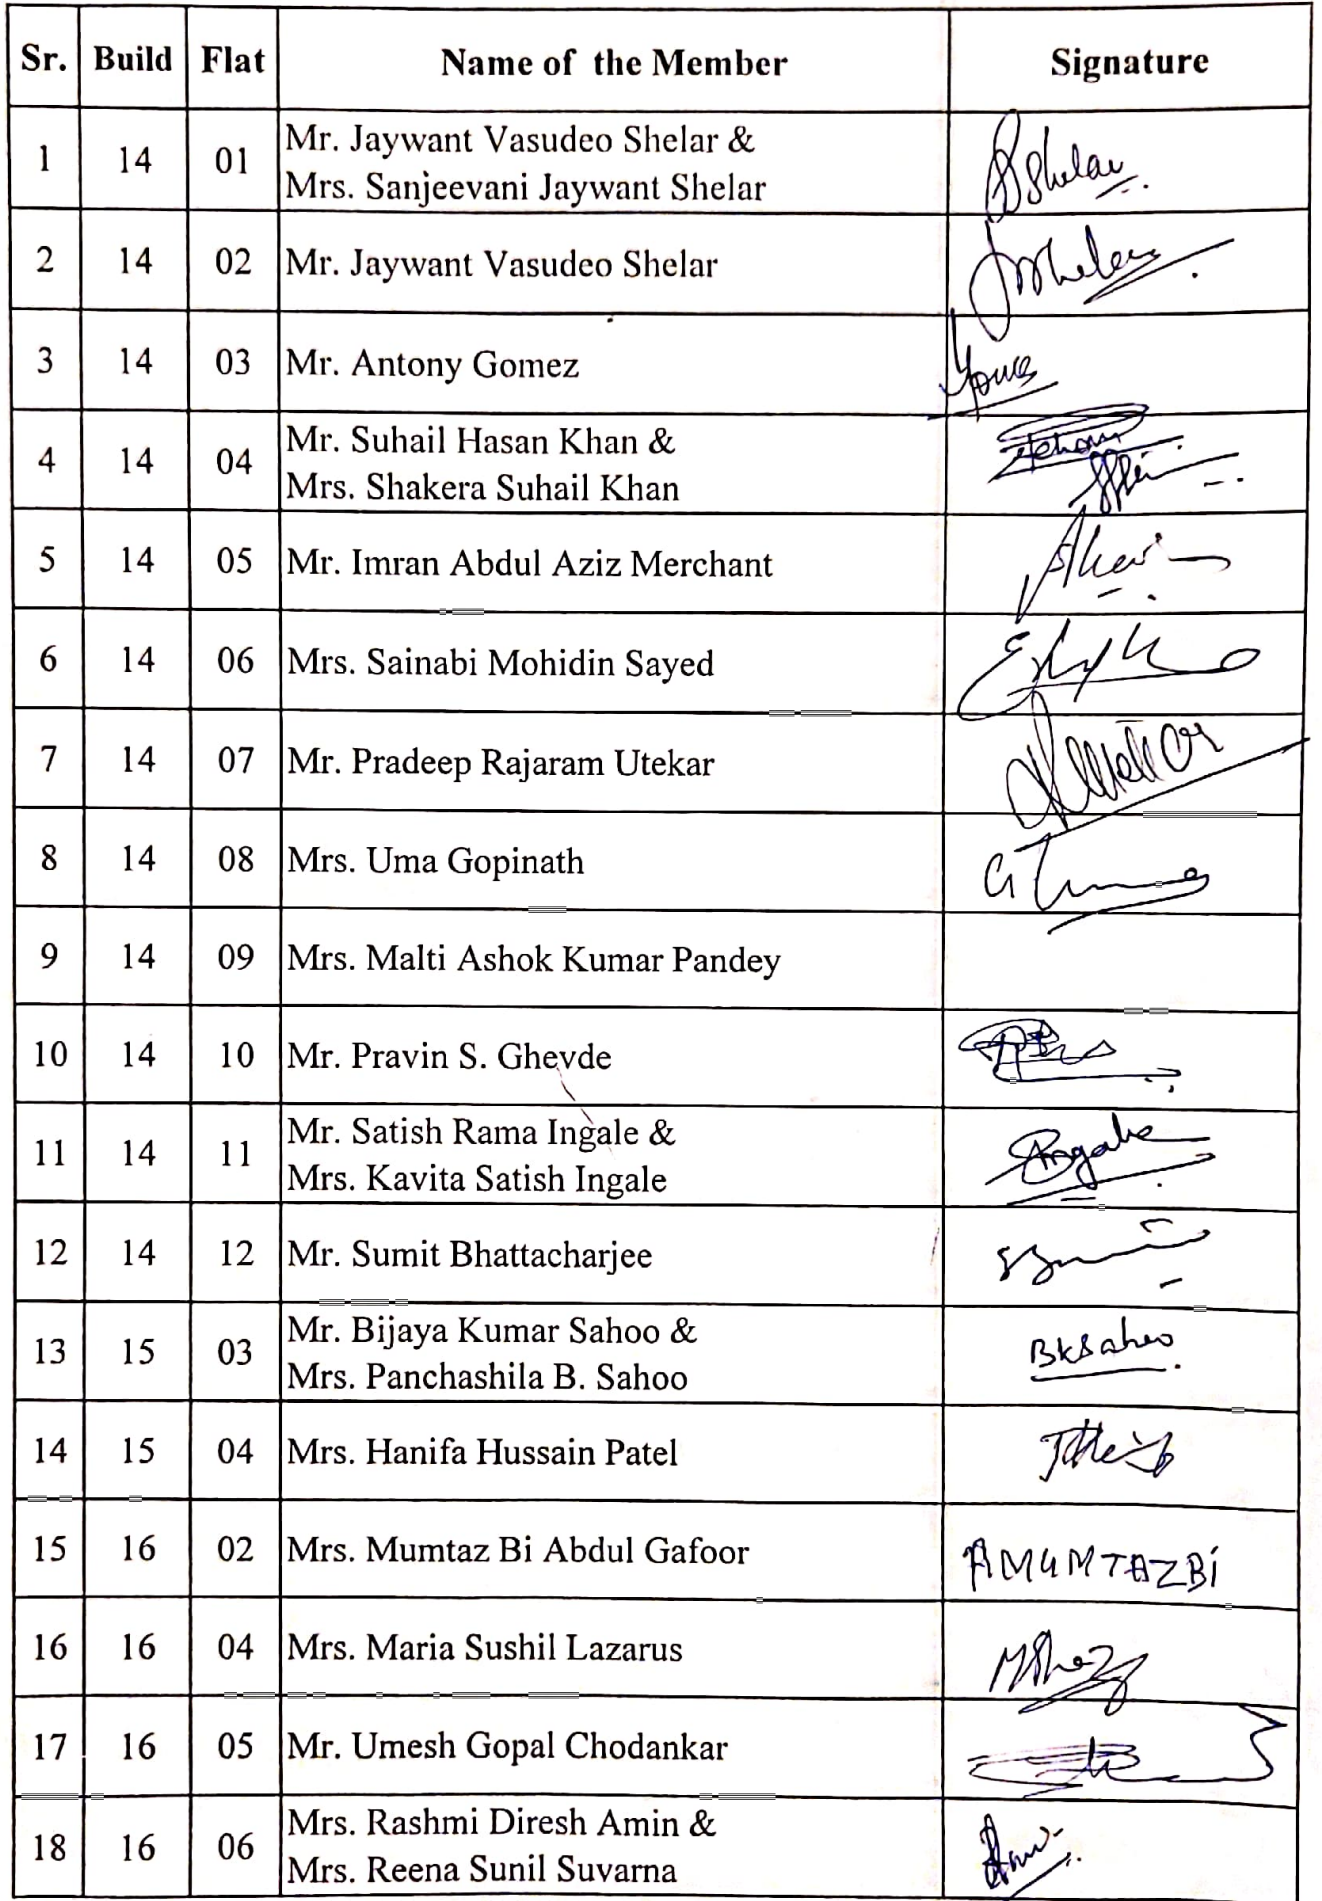 Sr. Build Flat Name of the Member Signature
1 14 01 Mr. Jaywant Vasudeo Shelar &
Mrs. Sanjeevani Jaywant Shelar Shelar
2 14 02 Mr. Jaywant Vasudeo Shelar
3 14 03 Mr. Antony Gomez
4 14 04 Mr. Suhail Hasan Khan &
Mrs. Shakera Suhail Khan
5 14 05 Mr. Imran Abdul Aziz Merchant
6 14 06 Mrs. Sainabi Mohidin Sayed
7 14 07 Mr. Pradeep Rajaram Utekar
8 14 08 Mrs. Uma Gopinath
9 14 09 Mrs. Malti Ashok Kumar Pandey
10 14 10 Mr. Pravin S. Ghevde
11 14 11 Mr. Satish Rama Ingale &
Mrs. Kavita Satish Ingale
12 14 12 Mr. Sumit Bhattacharjee
13 15 03 Mr. Bijaya Kumar Sahoo &
Mrs. Panchashila B. Sahoo BKSahoo
14 15 04 Mrs. Hanifa Hussain Patel
15 16 02 Mrs. Mumtaz Bi Abdul Gafoor AMUMTAZBi
16 16 04 Mrs. Maria Sushil Lazarus
17 16 05 Mr. Umesh Gopal Chodankar
18 16 06 Mrs. Rashmi Diresh Amin &
Mrs. Reena Sunil Suvarna